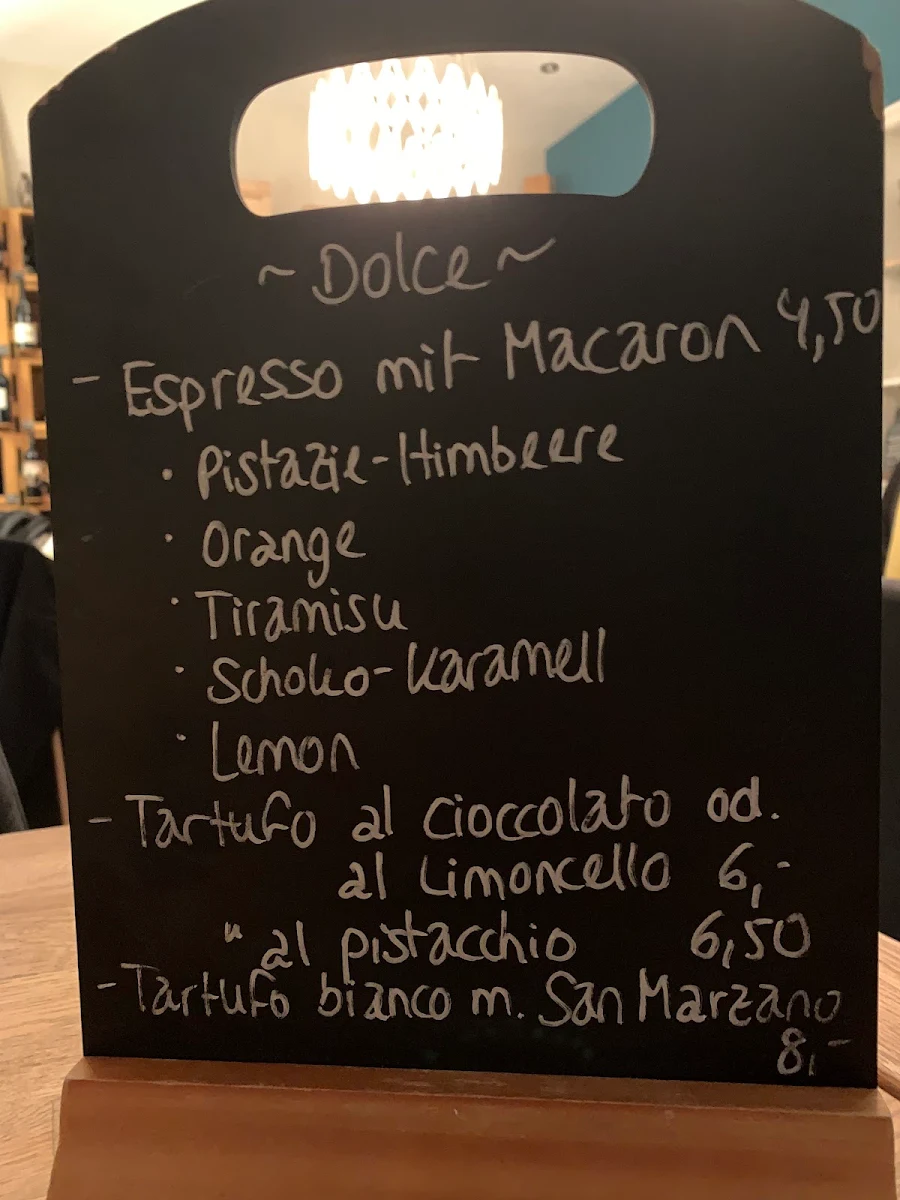 ~ Dolce ~
- Espresso mit Macaron 4,50
· Pistazie-Himbeere
· Orange
· Tiramisu
· Schoko-Karamell
· Lemon
- Tartufo al cioccolato od.
al Limoncello 6,-
" al pistacchio 6,50
- Tartufo bianco m. San Marzano
8,-